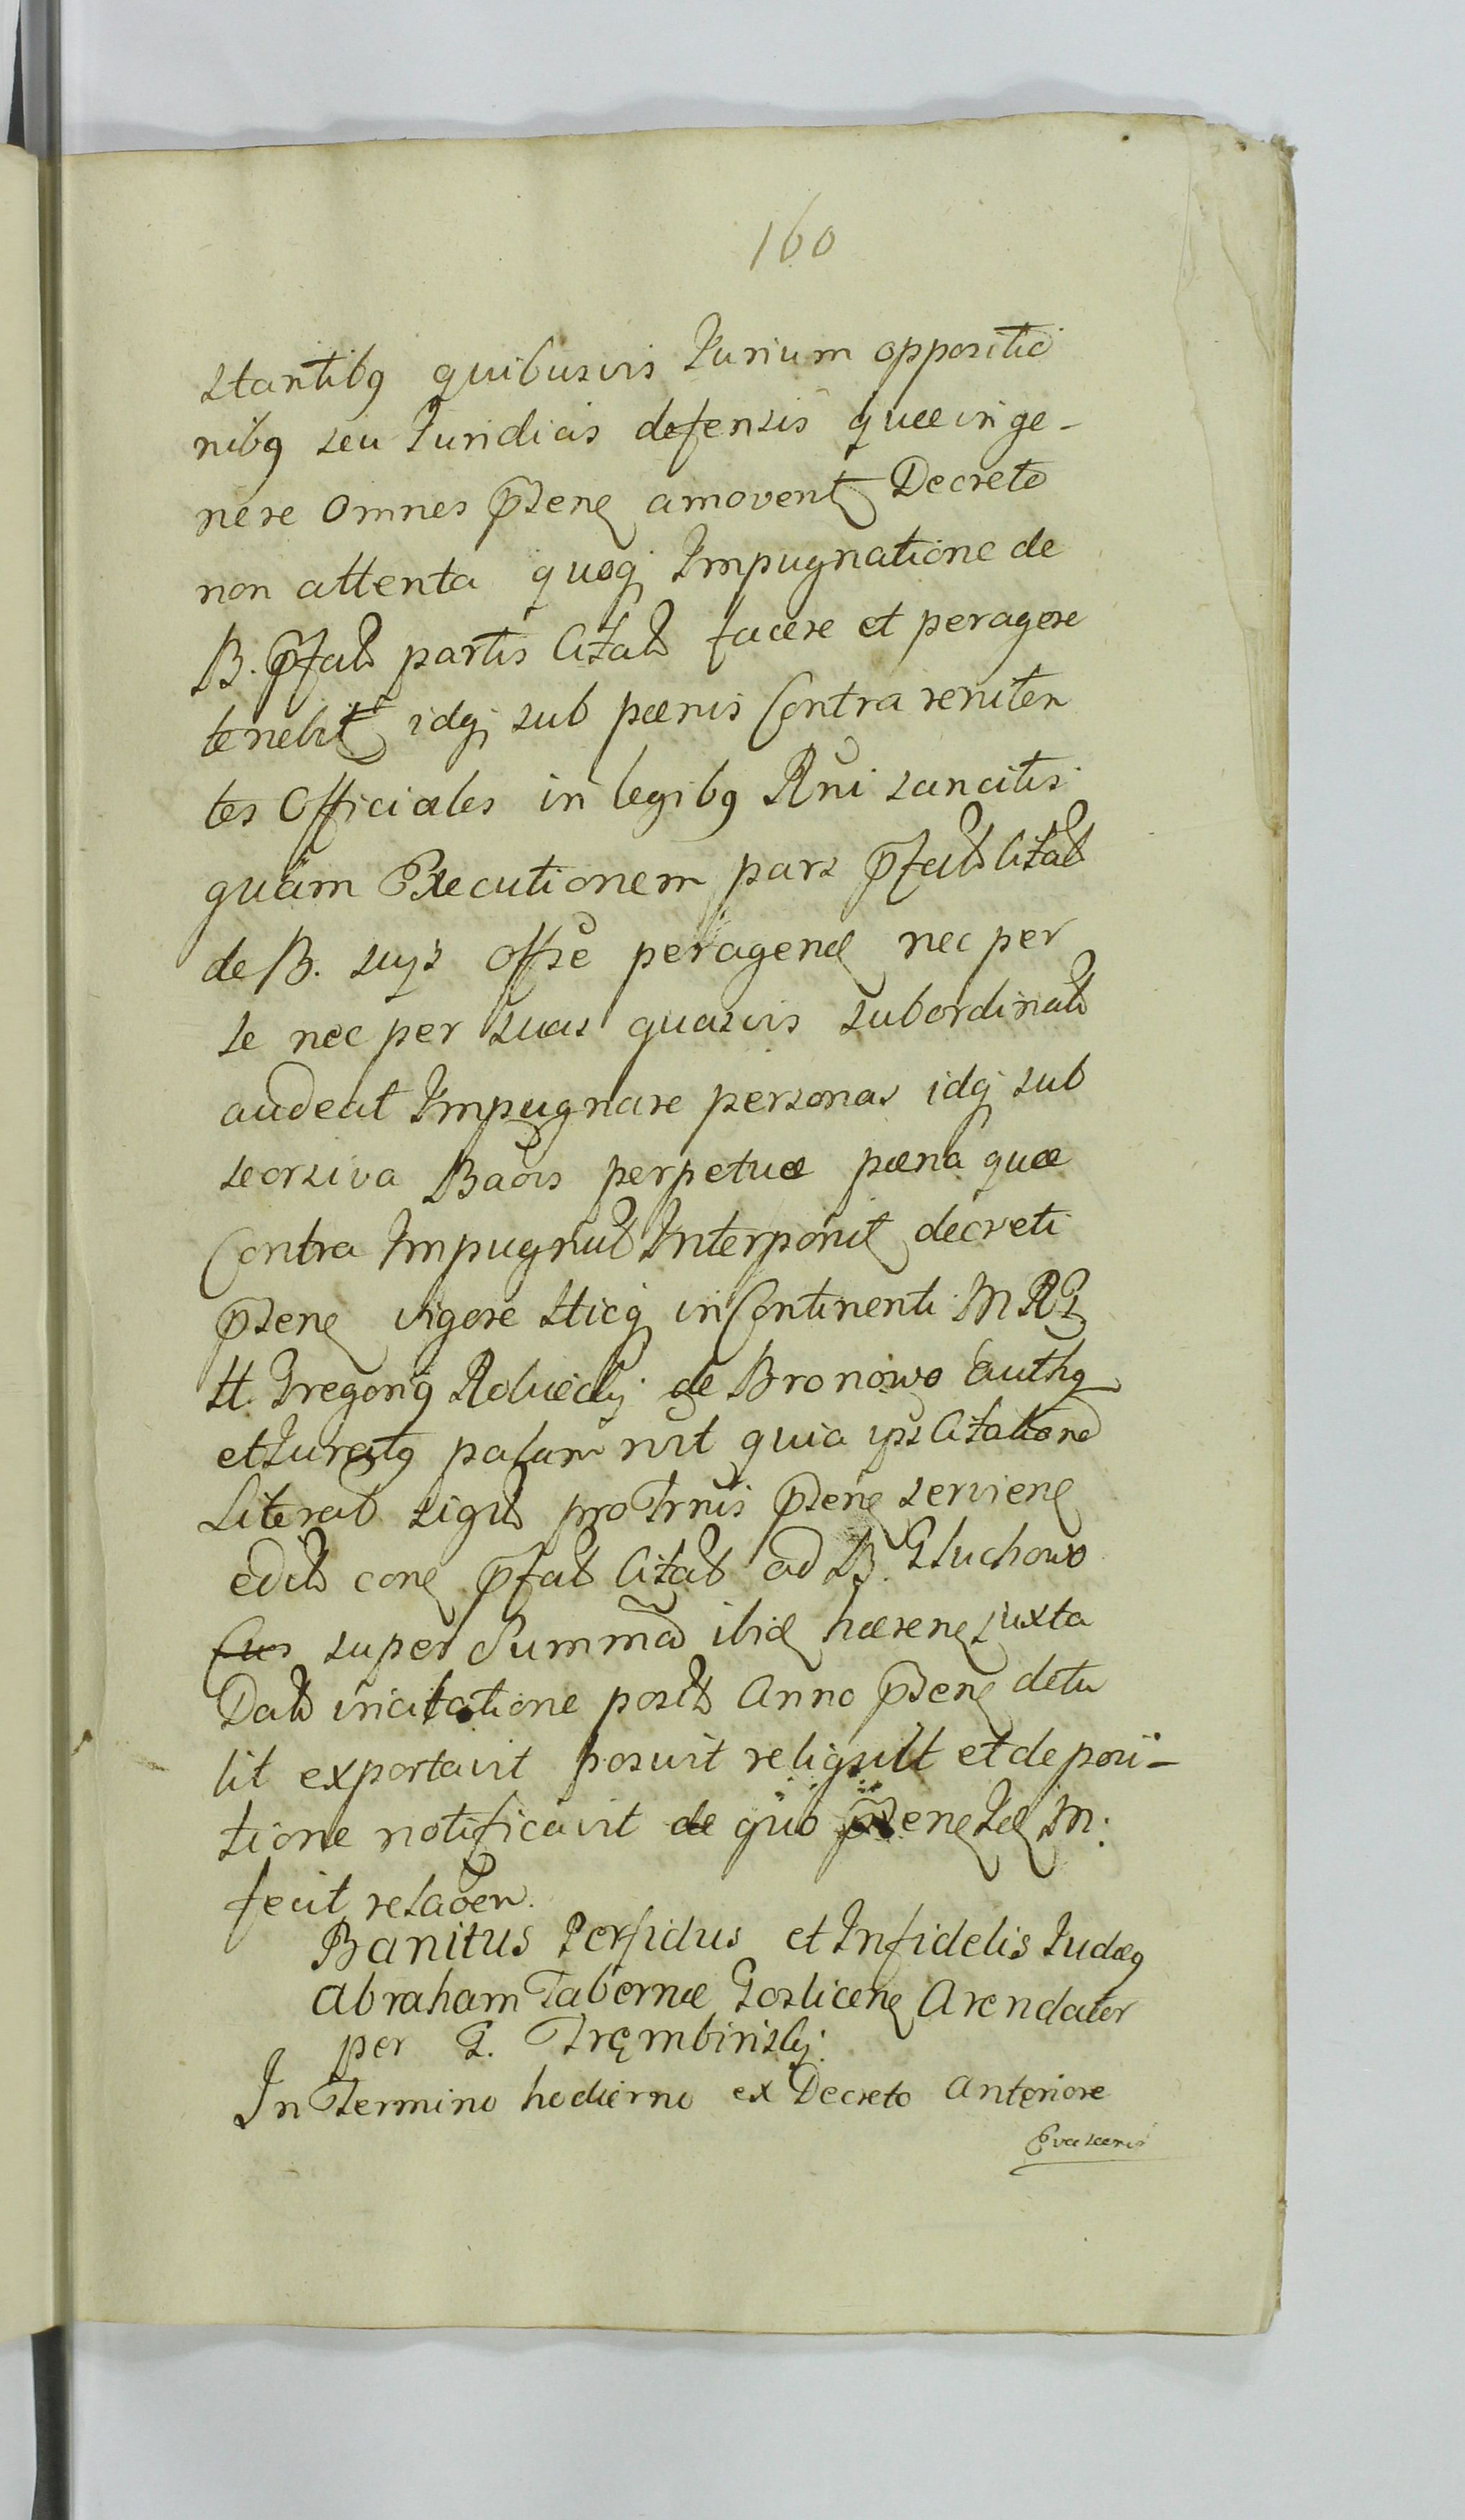 160
stantibq quibusvis Jurium oppositio
nibq seu Juridicis defensis quae in ge-
nere omnes pnse amovent Decreto
non attenta quoq Impugnatione de
B. pfatt partis Citatt facere et peragere
tenebit idq sub paenis Contra reniten
tes Officiales in legibq Rni sancitis
quam Executionem pars pfatt Citatt
de B. suys offse peragend nec per
se nec per suas quasvis subordinatt
audeat Impugnare personas idq sub
seorsiva Baois perpetuae paena quae
Contra Impugnatt Interponit decreti
psene vigore sticq in Continenti M R G
St. Gregorig de Bronowo Authq
et Juratq palam rvit quia ips Citatione
Literatt sigill pro Trnis psene serviene
editt cone pfatt Citatt ad B. Gluchowo
super Summa ibid haerene juxta
Datt in citatione positt Anno psene detu
lit exportavit posuit reliquit et de posi-
tione notificavit de quo psene Id M:
fecit relaoen.
Banitus Perfidus et Infidelis Judaeq
Abraham Tabernae Goslicene Arendator
per G. Trębinskj:
In Termino hodierno ex Decreto anteriore